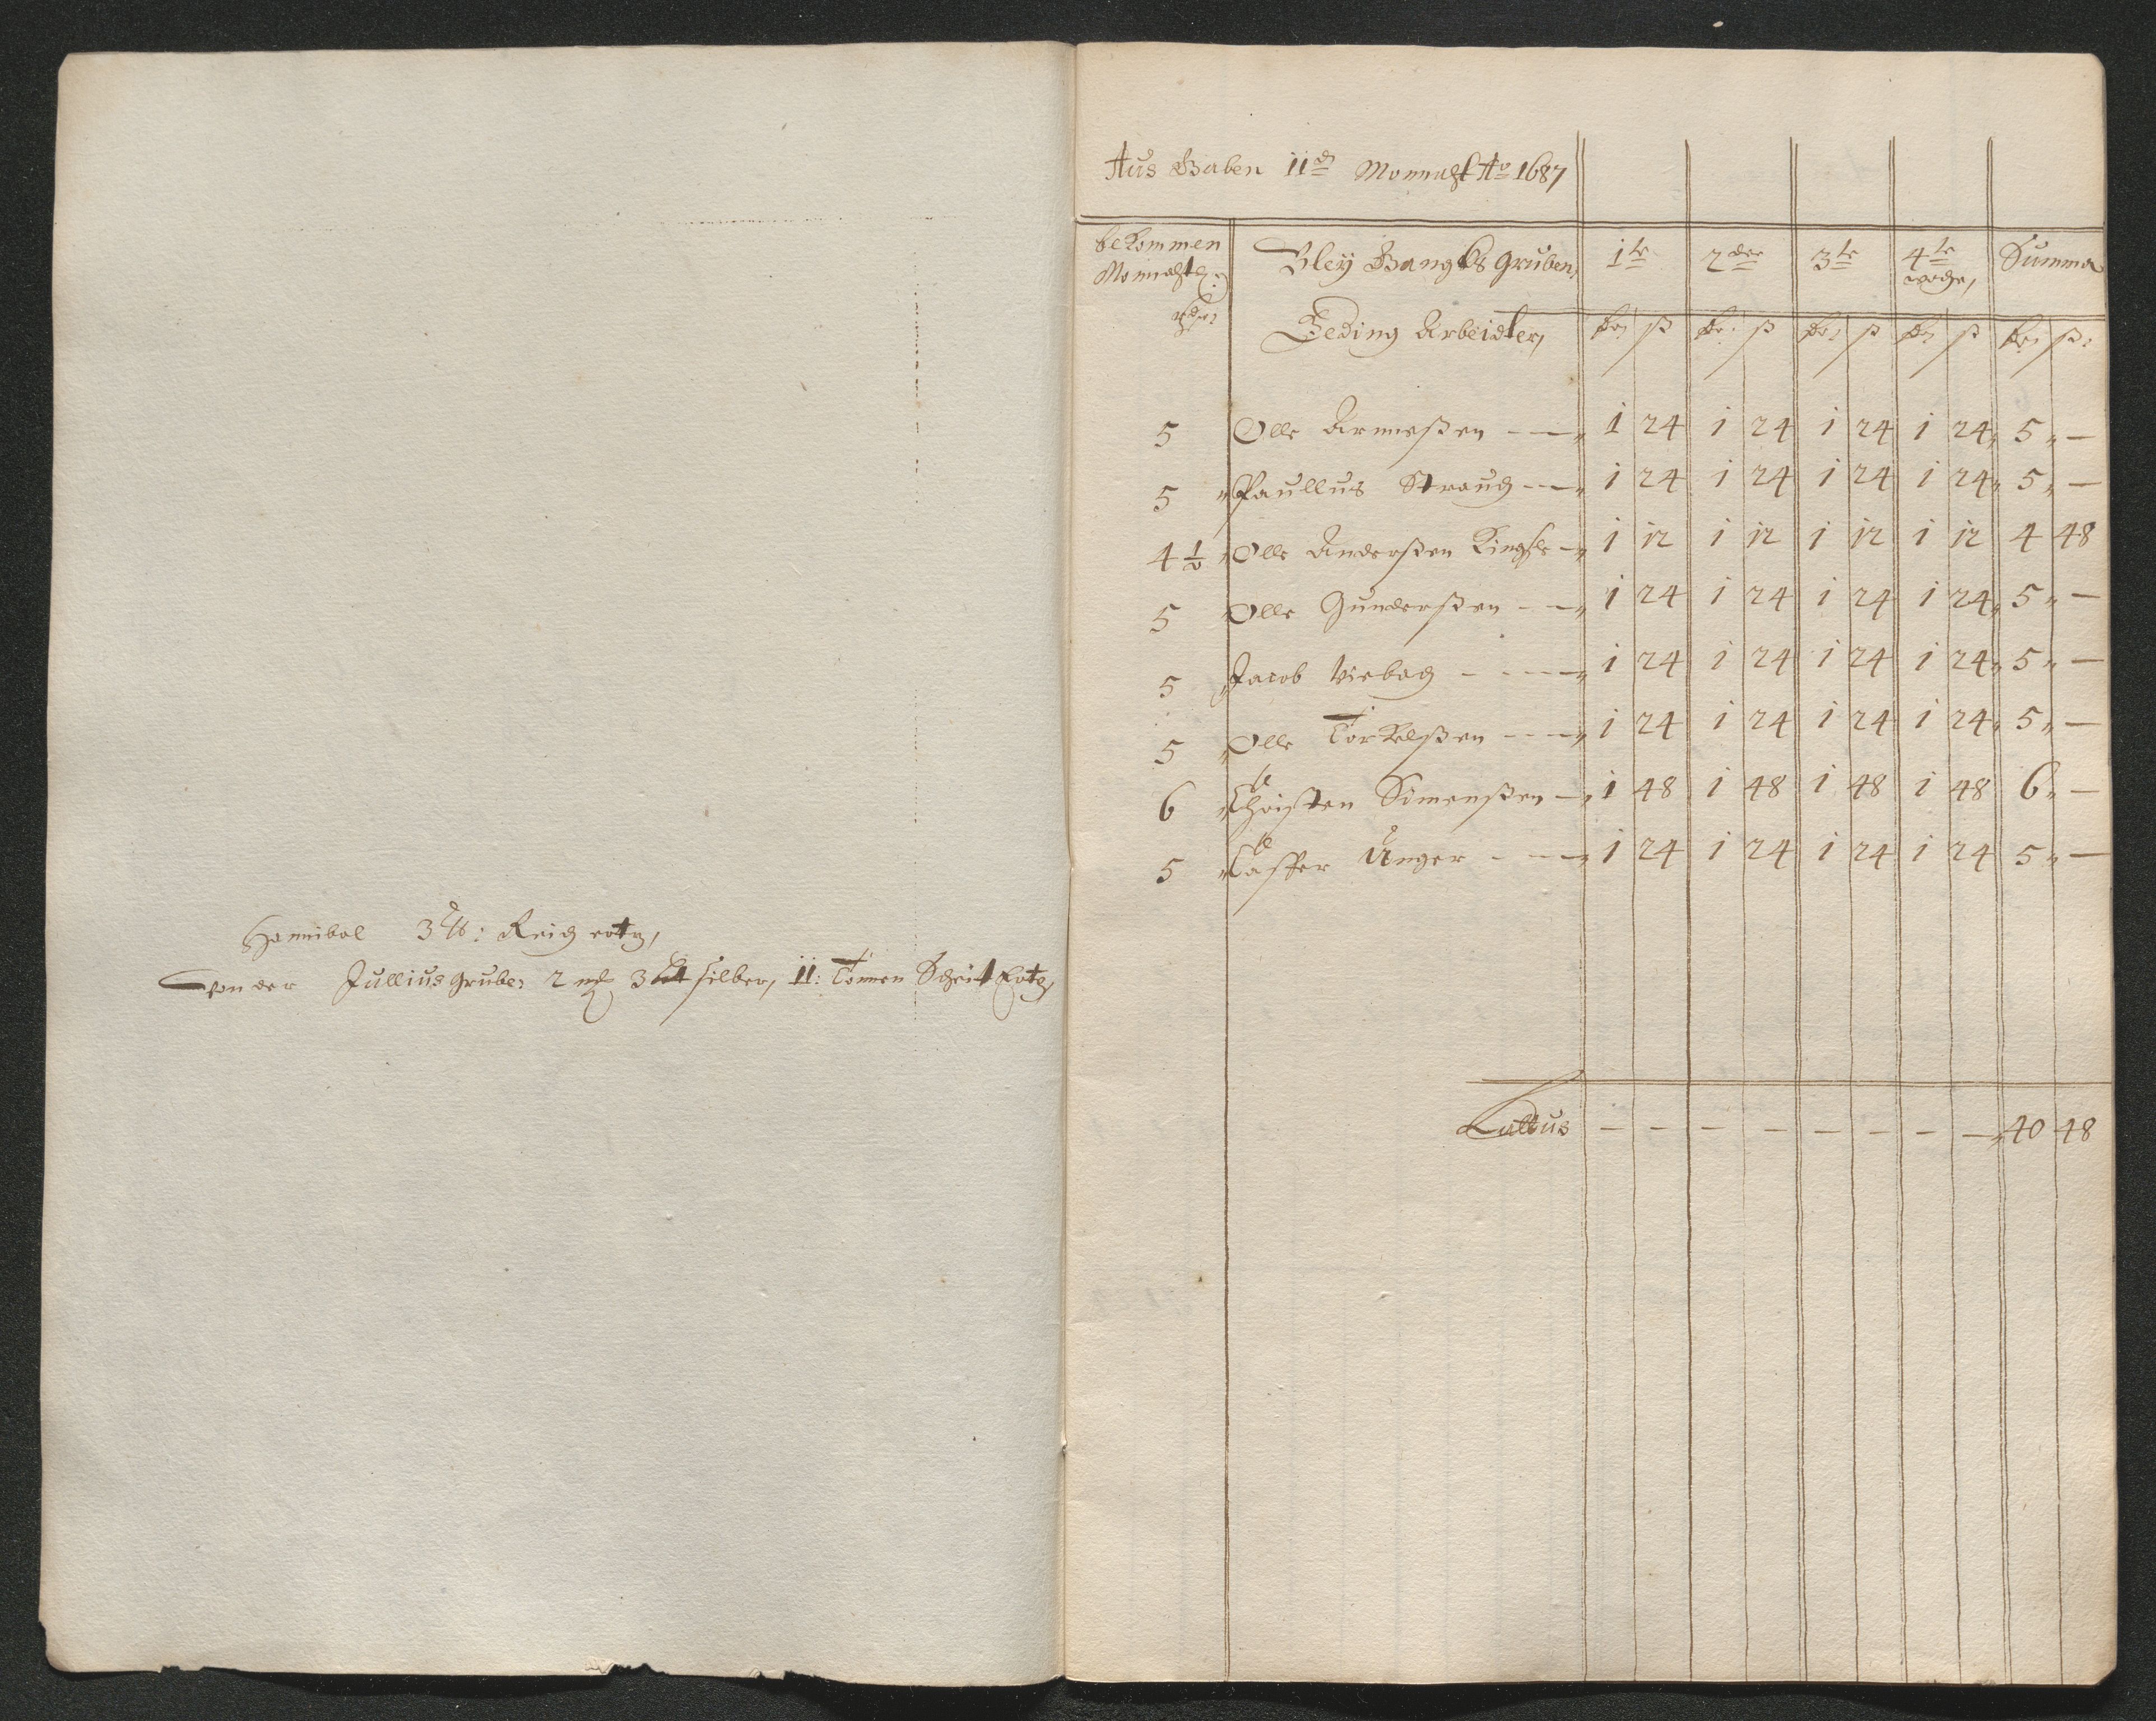 Hannibal 3 ℔: Reich ertz,
Von der Jullius Grube, 2 mk 3 lot silber, 11: Tonnen Scheit Ertz,
Aus Gaben 11d Monnaht Ao 1687
bekommen Monnahtl: rdr:
Bley Gangks Gruben, 1te 2der 3te 4te woche, Summa
Geding Arbeidter, dr ß dr: ß dr: ß dr ß dr ß:
5 Olle Arneßen 1 24 1 24 1 24 1 24 5 —
5 Paullus Strauch 1 24 1 24 1 24 1 24 5 —
4 1/2 Olle Anderßen 1 12 1 12 1 12 1 12 4 48
5 Olle Gunderßen 1 24 1 24 1 24 1 24 5 —
5 Jacob Viebag 1 24 1 24 1 24 1 24 5 —
5 Olle Torkelßen 1 24 1 24 1 24 1 24 5 —
6 Christen Simenßen 1 48 1 48 1 48 1 48 6 —
5 Casper Unger 1 24 1 24 1 24 1 24 5 —
Lattus — — — — — — — — 40 48